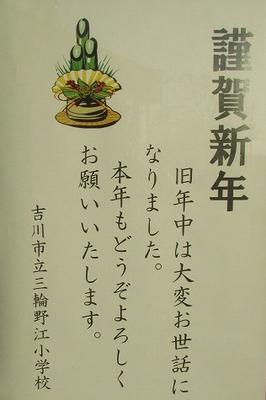 謹賀新年
旧年中は大変お世話に
なりました。
本年もどうぞよろしく
お願いいたします。
吉川市立三輪野江小学校